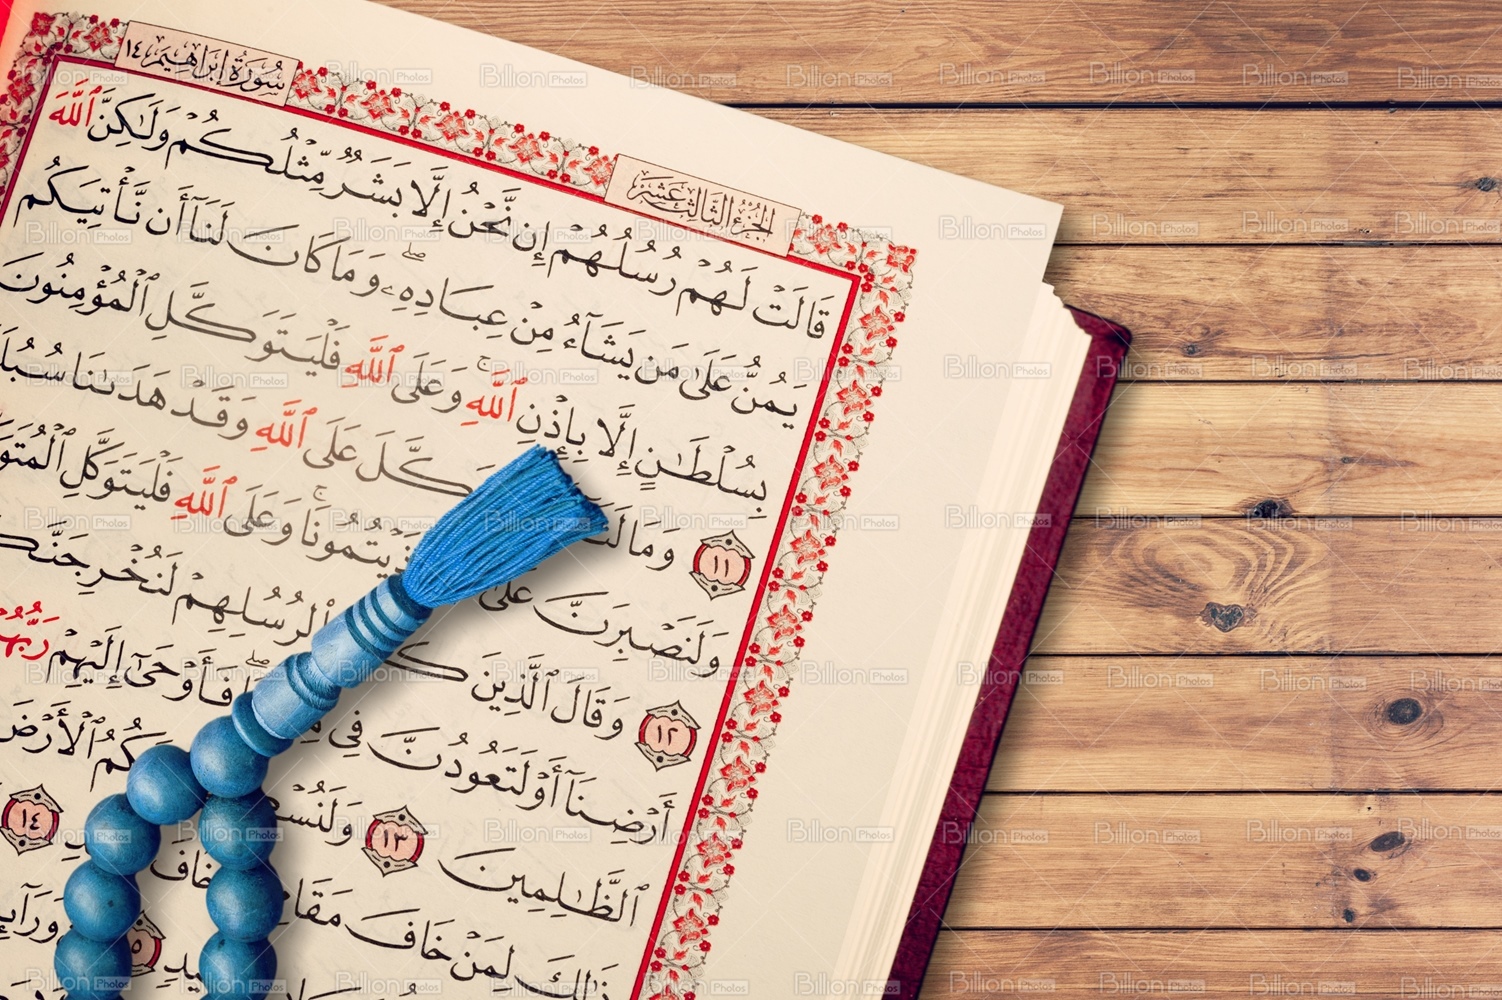 سُورَةُ إِبْرَاهِيمَ ١٤
الجُزْءُ الثَّالِثَ عَشَرَ
قَالَتْ لَهُمْ رُسُلُهُمْ إِن نَّحْنُ إِلَّا بَشَرٌ مِّثْلُكُمْ وَلَٰكِنَّ ٱللَّهَ
يَمُنُّ عَلَىٰ مَن يَشَآءُ مِنْ عِبَادِهِۦ ۖ وَمَا كَانَ لَنَآ أَن نَّأْتِيَكُم
بِسُلْطَٰنٍ إِلَّا بِإِذْنِ ٱللَّهِ ۚ وَعَلَى ٱللَّهِ فَلْيَتَوَكَّلِ ٱلْمُؤْمِنُونَ
١١ وَمَا عَلَى ٱللَّهِ وَقَدْ هَدَىٰنَا
وَلَنَصْبِرَنَّ عَلَىٰ وَعَلَى ٱللَّهِ فَلْيَتَوَكَّلِ
١٢ وَقَالَ ٱلَّذِينَ لِرُسُلِهِمْ
أَرْضِنَآ أَوْ لَتَعُودُنَّ فِى فَأَوْحَىٰٓ إِلَيْهِمْ
ٱلظَّٰلِمِينَ ١٣ ٱلْأَرْضَ
ذَٰلِكَ لِمَنْ خَافَ ١٤
Billion Photos